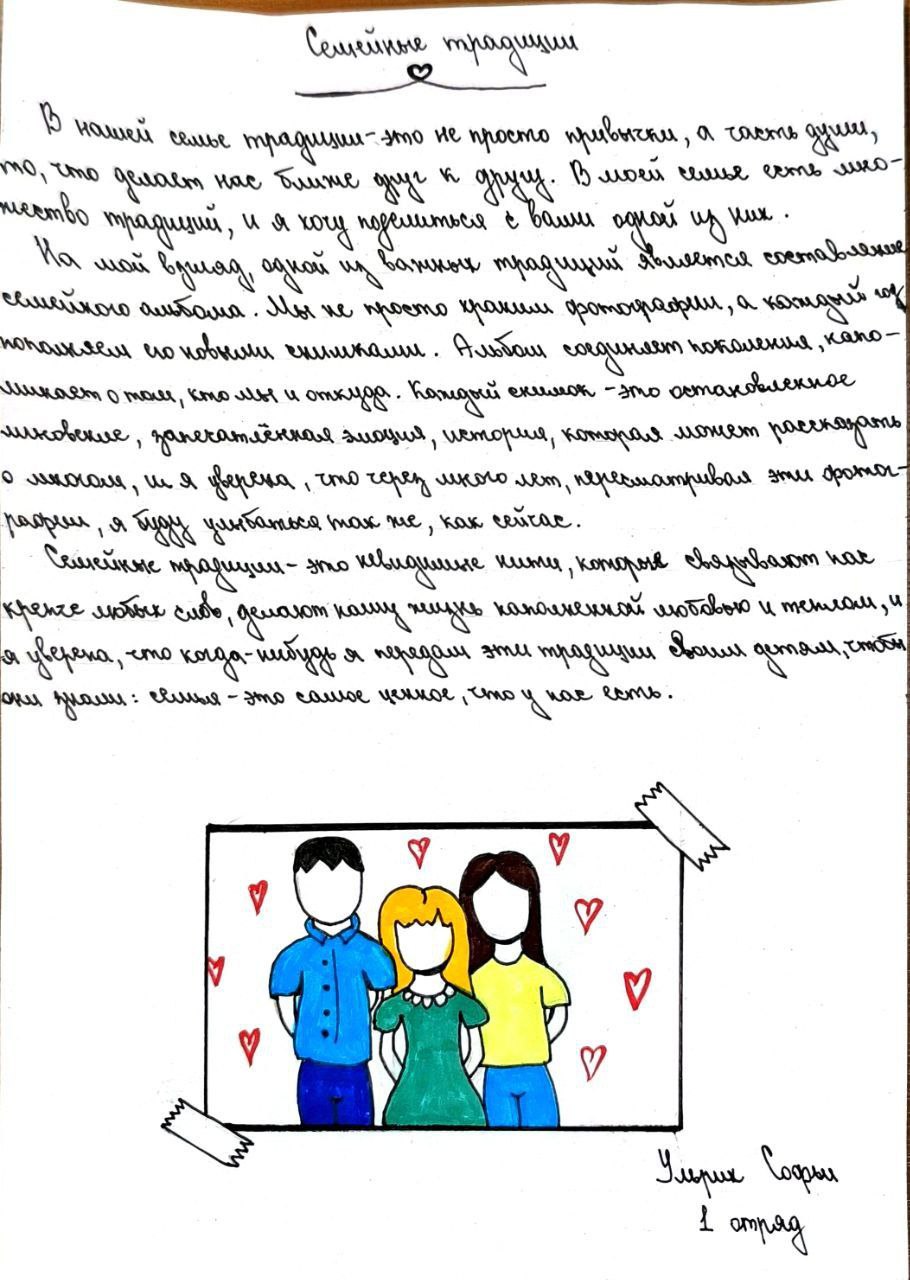 Семейные традиции
В нашей семье традиции - это не просто привычки, а часть души,
то, что делает нас ближе друг к другу. В моей семье есть мно-
жество традиций, и я хочу поделиться с вами одной из них.
На мой взгляд, одной из важных традиций является составление
семейного альбома. Мы не просто храним фотографии, а каждый год
пополняем его новыми снимками. Альбом соединяет поколения, напо-
минает о том, кто мы и откуда. Каждый снимок - это остановленное
мгновение, запечатлённая эмоция, история, которая может рассказать
о многом, и я уверена, что через много лет, пересматривая эти фотог-
рафии, я буду улыбаться так же, как сейчас.
Семейные традиции - это невидимые нити, которые связывают нас
крепче любых слов, делают нашу жизнь наполненной любовью и теплом, и
я уверена, что когда-нибудь я передам эти традиции своим детям, чтобы
они знали: семья - это самое ценное, что у нас есть.
Ульрих Софьи
1 отряд